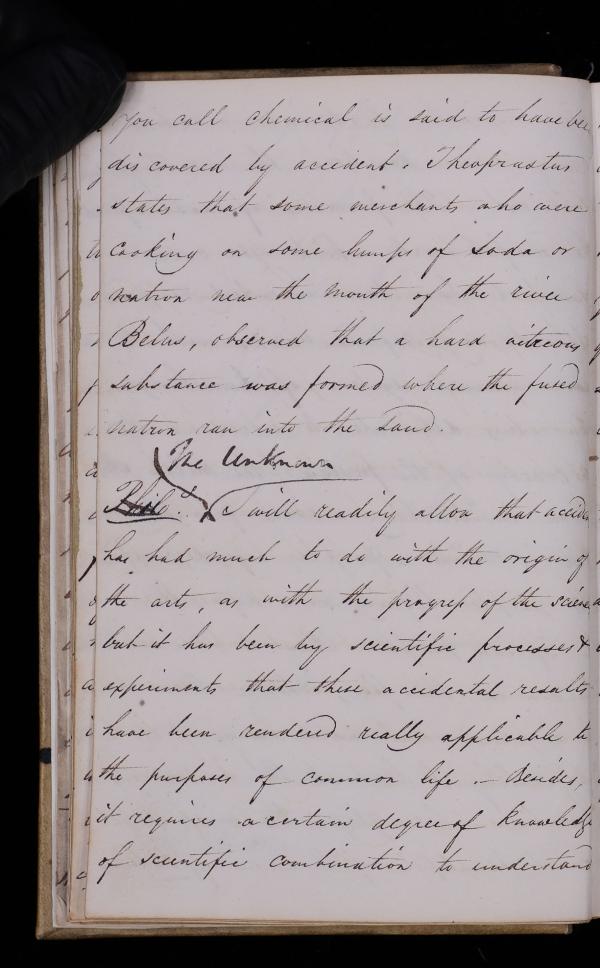 you call chemical is said to have bee
discovered by accident. Theoprastus
states that some merchants who were
cooking on some lumps of Soda or
natron near the mouth of the river
Belus, observed that a hard vitreous
substance was formed where the fused
natron ran into the sand.
The Unknown
Philo. I will readily allow that accide
has had much to do with the origin of
the arts, as with the progress of the science
but it has been by scientific processes &
experiments that these accidental results
have been rendered really applicable to
the purposes of common life. — Besides,
it requires a certain degree of knowledge
of scientific combination to understand